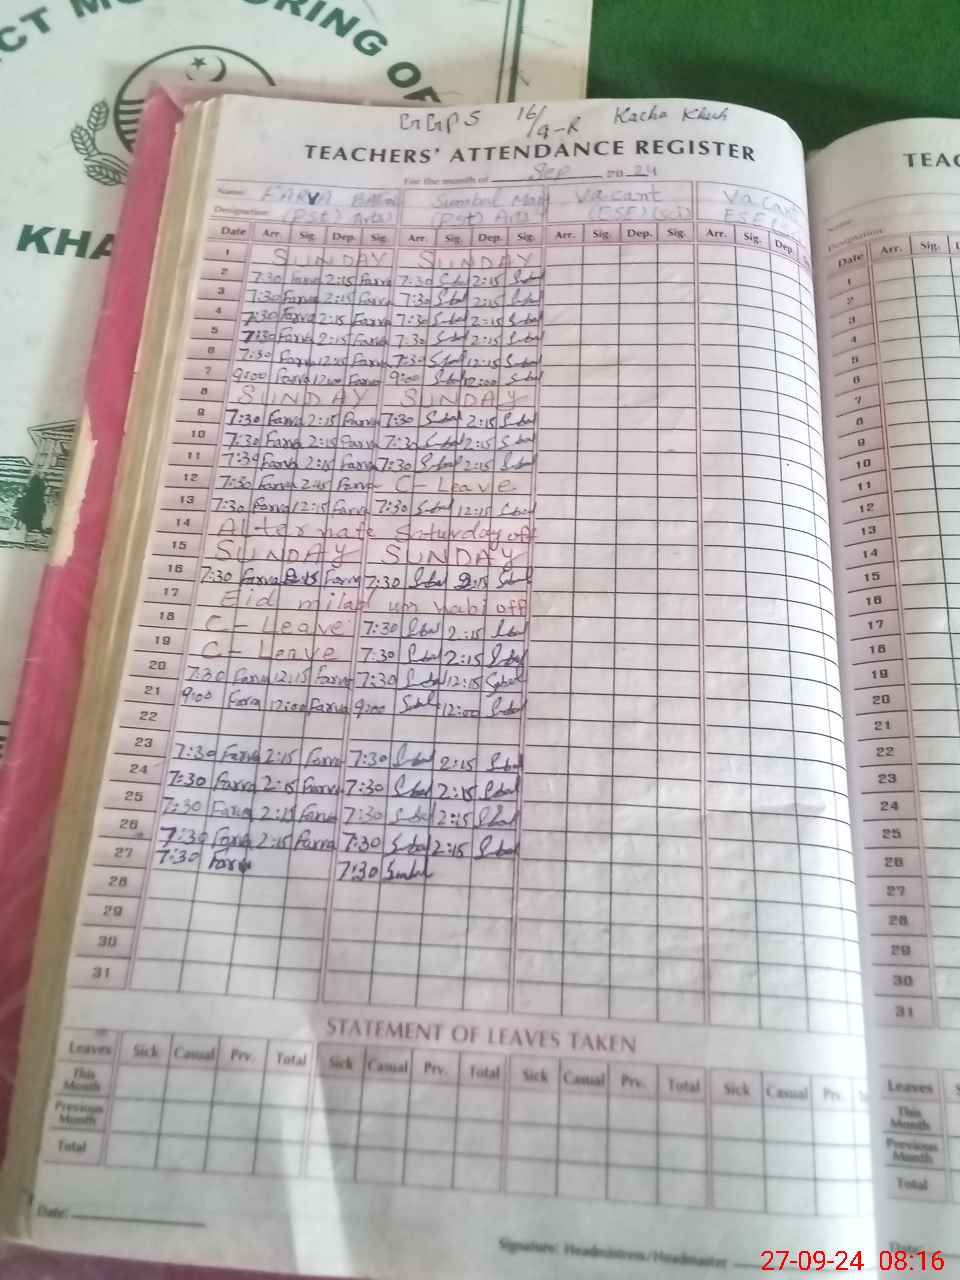 CT MONITORING OF
KHA
GGPS 16/9-R Kacha Khuh
TEACHERS' ATTENDANCE REGISTER
For the month of Sep 20 24
Name: FARVA Sumbal Vacant Vacant
Designation: (PST) Arts (PST) Arts (ESE) (sci) ESE
Date Arr. Sig. Dep. Sig. Arr. Sig. Dep. Sig. Arr. Sig. Dep. Sig. Arr. Sig. Dep.
1 SUNDAY SUNDAY
2 7:30 Farva 2:15 Farva 7:30 Sbal 2:15 Sbal
3 7:30 Farva 2:15 Farva 7:30 Sbal 2:15 Sbal
4 7:30 Farva 2:15 Farva 7:30 Sbal 2:15 Sbal
5 7:30 Farva 2:15 Farva 7:30 Sbal 2:15 Sbal
6 7:30 Farva 12:15 Farva 7:30 Sbal 12:15 Sbal
7 9:00 Farva 12:00 Farva 9:00 Sbal 12:00 Sbal
8 SUNDAY SUNDAY
9 7:30 Farva 2:15 Farva 7:30 Sbal 2:15 Sbal
10 7:30 Farva 2:15 Farva 7:30 Sbal 2:15 Sbal
11 7:30 Farva 2:15 Farva 7:30 Sbal 2:15 Sbal
12 7:30 Farva 2:15 Farva C-Leave
13 7:30 Farva 12:15 Farva 7:30 Sbal 12:15 Sbal
14 Alternate Saturday off
15 SUNDAY SUNDAY
16 7:30 Farva 2:15 Farva 7:30 Sbal 2:15 Sbal
17 Eid milad un nabi off
18 C-Leave 7:30 Sbal 2:15 Sbal
19 C-Leave 7:30 Sbal 2:15 Sbal
20 7:30 Farva 12:15 Farva 7:30 Sbal 12:15 Sbal
21 9:00 Farva 12:00 Farva 9:00 Sbal 12:00 Sbal
22
23 7:30 Farva 2:15 Farva 7:30 Sbal 2:15 Sbal
24 7:30 Farva 2:15 Farva 7:30 Sbal 2:15 Sbal
25 7:30 Farva 2:15 Farva 7:30 Sbal 2:15 Sbal
26 7:30 Farva 2:15 Farva 7:30 Sbal 2:15 Sbal
27 7:30 Farva 7:30 Sumbal
28
29
30
31
STATEMENT OF LEAVES TAKEN
Leaves Sick Casual Prv. Total Sick Casual Prv. Total Sick Casual Prv. Total Sick Casual Prv.
This Month
Previous Month
Total
Date:
Signature: Headmistress/Headmaster
TEAC
Name:
Designation:
Date Arr. Sig.
1
2
3
4
5
6
7
8
9
10
11
12
13
14
15
16
17
18
19
20
21
22
23
24
25
26
27
28
29
30
31
Leaves
This Month
Previous Month
Total
27-09-24 08:16